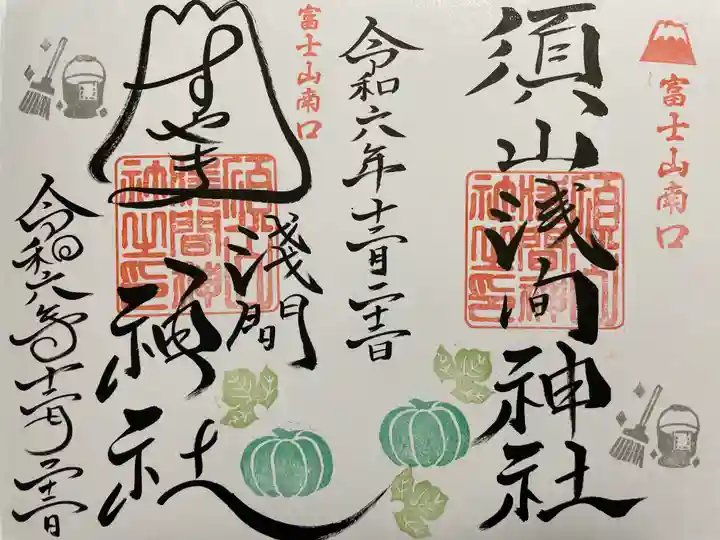 富士山南口
須山浅间神社
須山浅間神社之印
令和六年十二月二十二日
富士山南口
すやま
浅間
神社
須山浅間神社之印
令和六年十二月二十二日